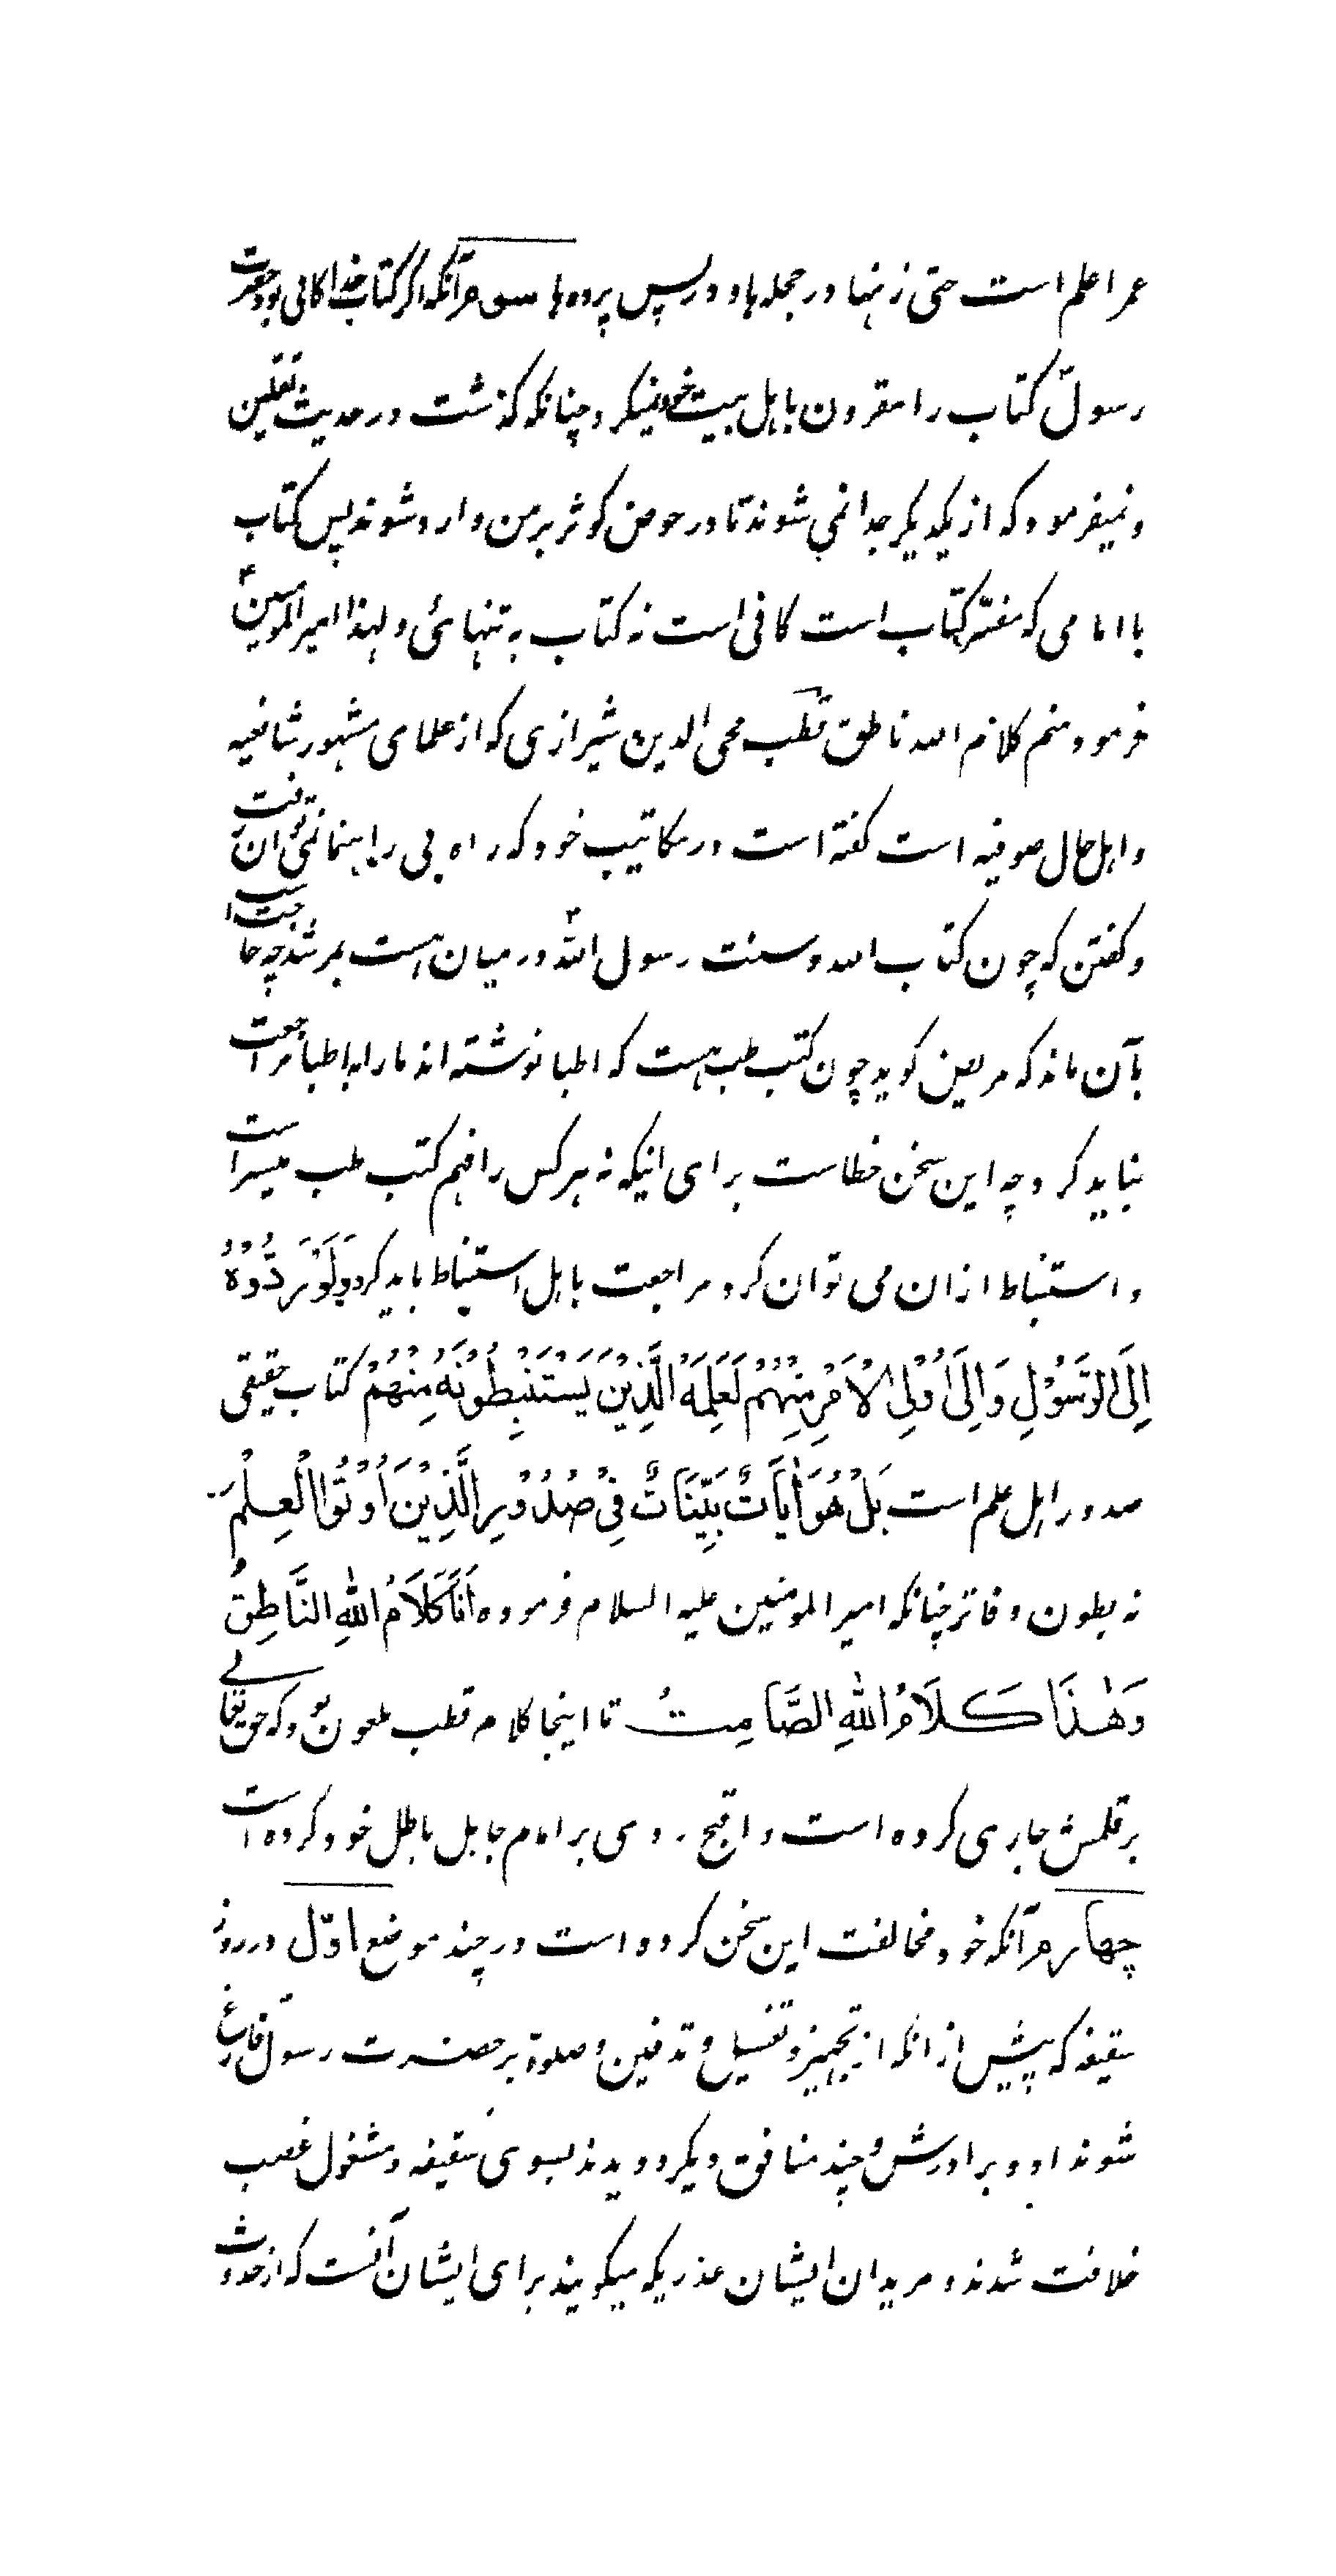 عمر اعلم است حتی زنها در حجله‌ها و در پس پرده‌ها سوم آنکه اگر کتاب خدا کافی بود حضرت
رسولؐ کتاب را مقرون باهل بیت خود نمیکرد چنانکه گذشت در حدیث ثقلین
و نمیفرمود که از یکدیگر جدا نمی شوند تا در حوض کوثر بر من وارد شوند پس کتاب
با امامی که مفسّر کتاب است کافی است نه کتاب به تنهائی و لهذا امیرالمومنینؑ
فرمود منم کلام الله ناطق قطب محی الدین شیرازی که از علمای مشهور شافعیه
و اهل حال صوفیه است گفته است در مکاتیب خود که راه بی راهنما نمی‌توان رفت
و گفتن که چون کتاب الله و سنت رسول اللهؐ درمیان هست بمرشد چه حاجت است
بآن ماند که مریض گوید چون کتب طب هست که اطبا نوشته اند ما را باطبا مراجعت
نباید کرد چه این سخن خطاست برای اینکه نه هر کس را فهم کتب طب میسر است
و استنباط ازان می توان کرد مراجعت باهل استنباط باید کرد وَلَوْ رَدُّوْهُ
اِلَی الرَّسُوْلِ وَاِلَی اُولِی الْاَمْرِ مِنْهُمْ لَعَلِمَهُ الَّذِیْنَ یَسْتَنْبِطُوْنَهُ مِنْهُمْ کتاب حقیقی
صدور اهل علم است بَلْ هُوَ اٰیَاتٌ بَیِّنَاتٌ فِیْ صُدُوْرِ الَّذِیْنَ اُوْتُوا الْعِلْمَ
نه بطون دفاتر چنانکه امیرالمومنین علیه السلام فرموده اَنَا کَلَامُ اللهِ النَّاطِقُ
وَهٰذَا کَلَامُ اللهِ الصَّامِتُ تا اینجا کلام قطب ملعون بود که حق تعالی
بر قلمش جاری کرده است و اقبح ردی بر امام جاهل باطل خود کرده است
چهارم آنکه خود مخالفت این سخن کرده است در چند موضع اوّل در روز
سقیفه که پیش از انکه از تجهیز و تغسیل و تدفین و صلوة بر حضرت رسولؐ فارغ
شوند او و برادرش و چند منافق دیگر دویدند بسوی سقیفه و مشغول غصب
خلافت شدند و مریدان ایشان عذریکه میگویند برای ایشان آنست که از حدوث